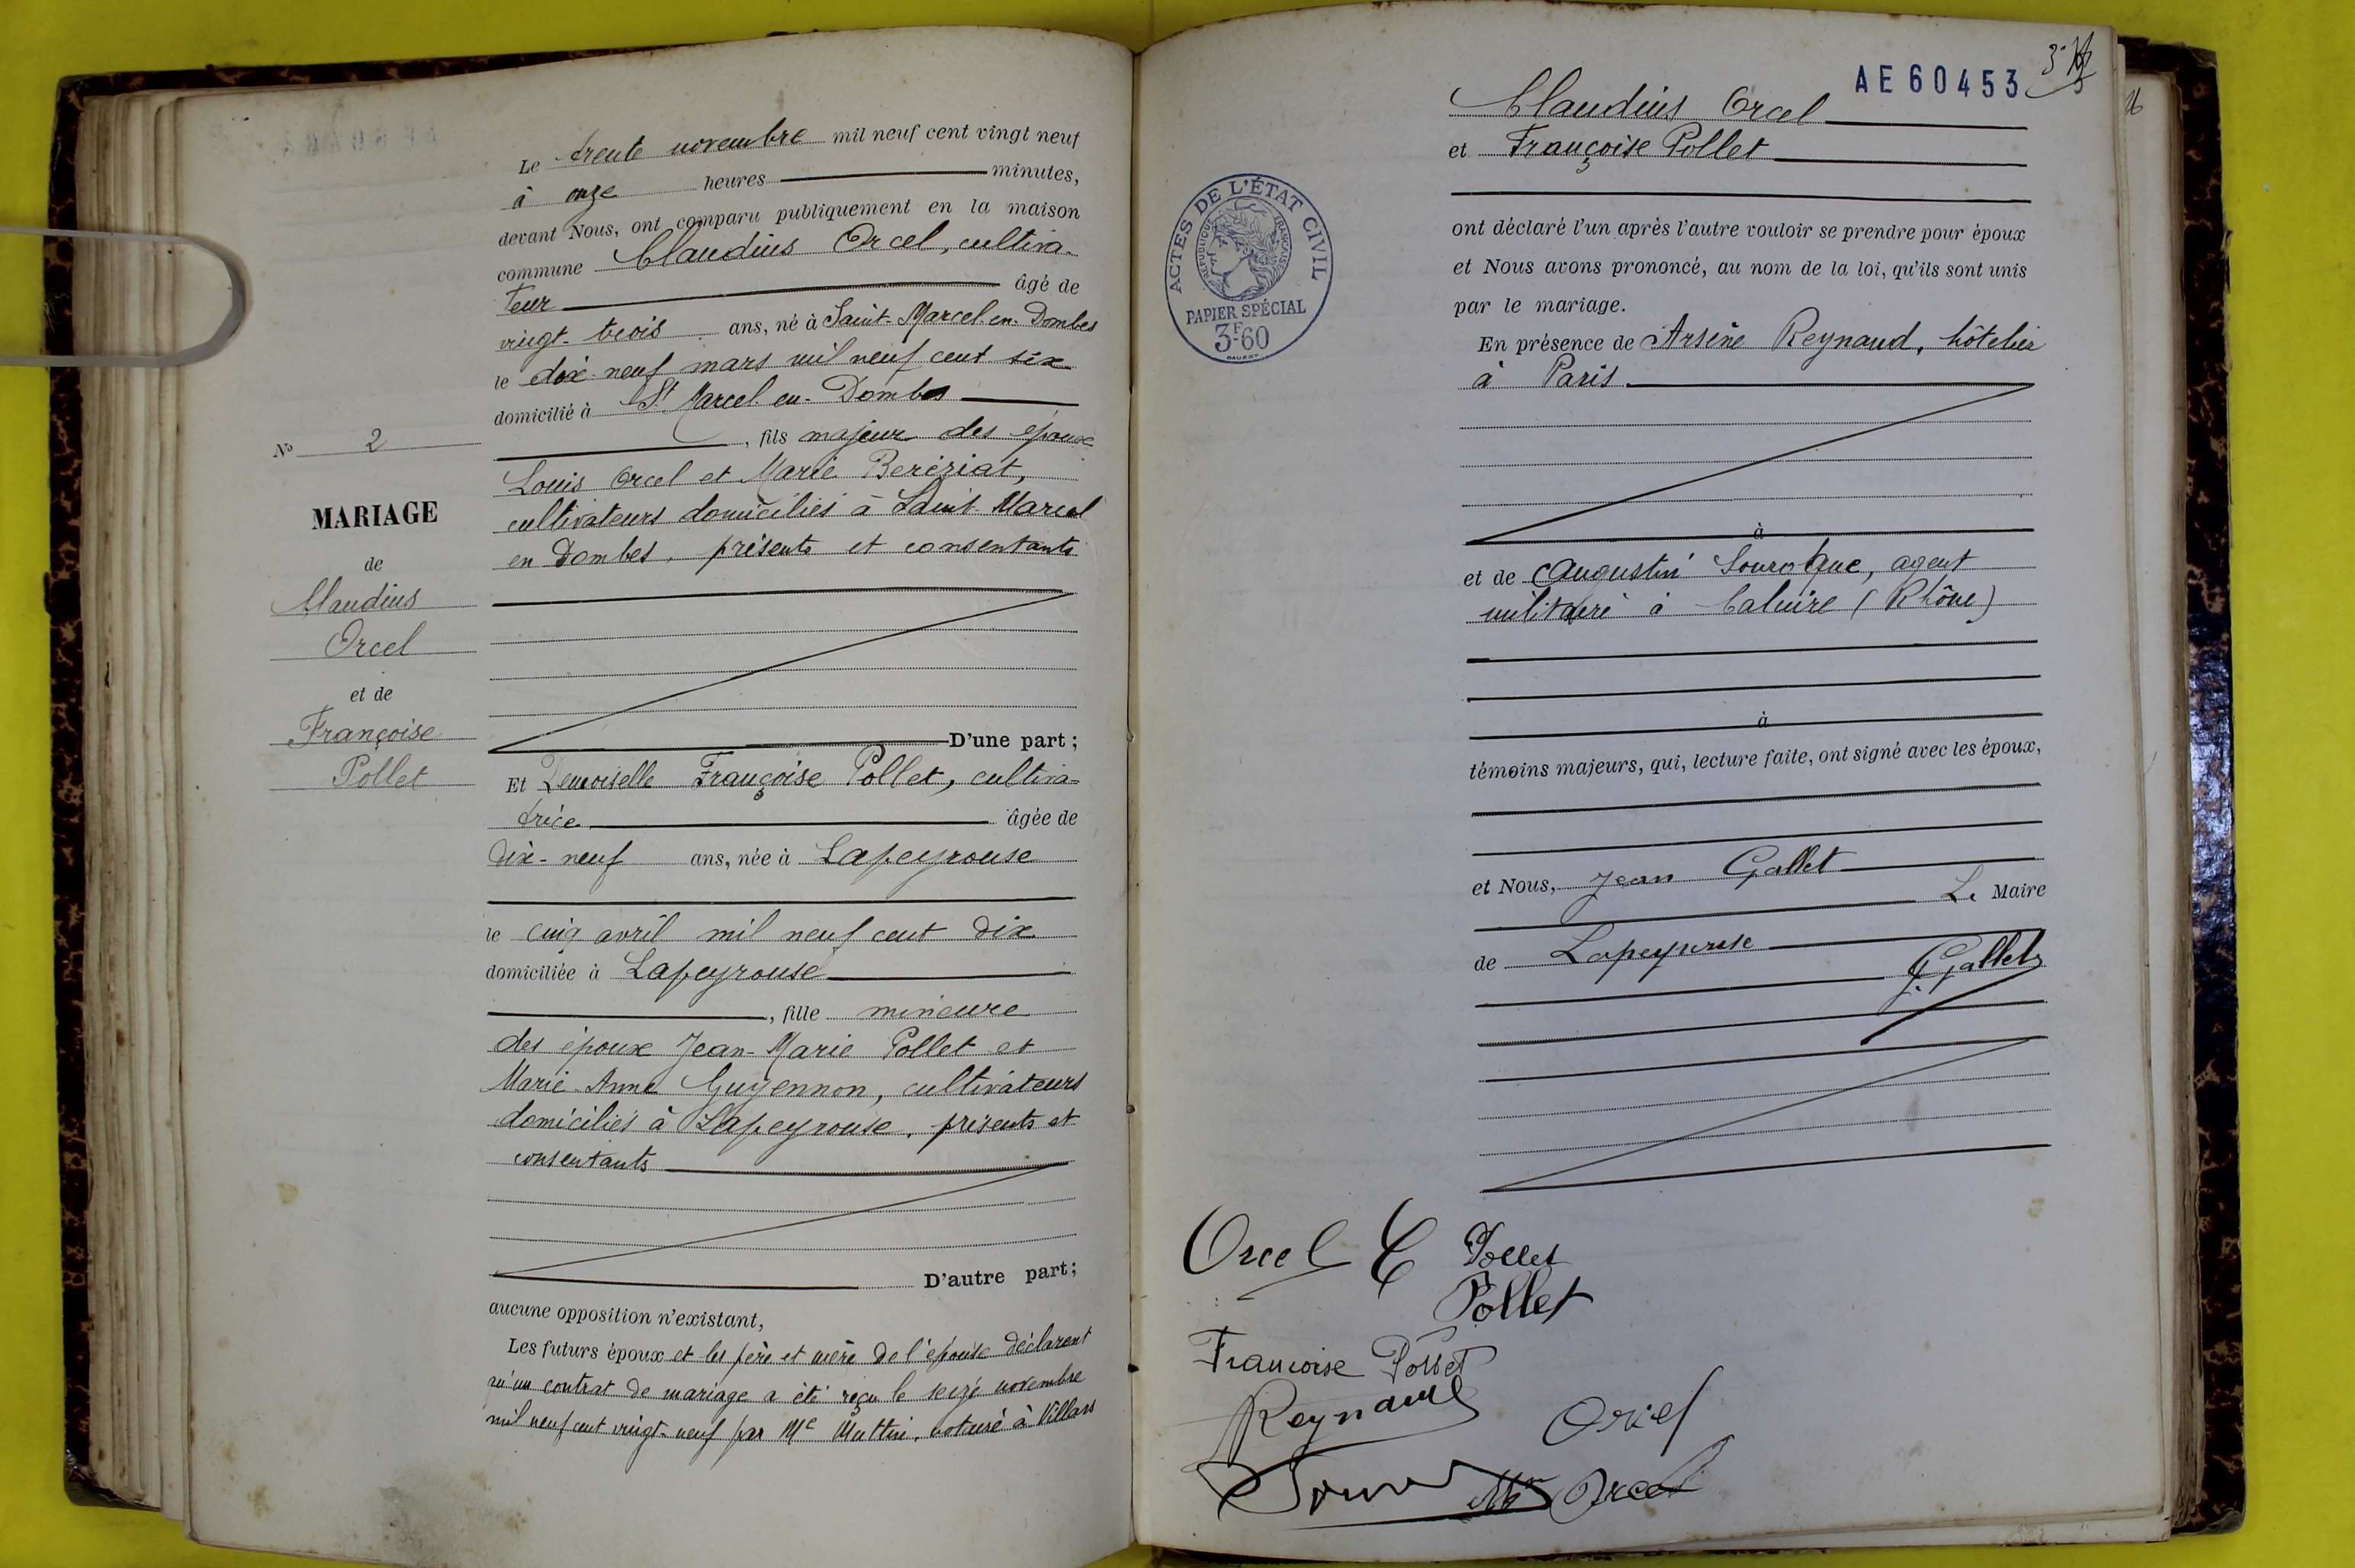 Le trente novembre mil neuf cent vingt neuf
à onze heures minutes,
devant Nous, ont comparu publiquement en la maison
commune Claudius Orcel, cultiva-
teur âgé de
vingt-trois ans, né à Saint-Marcel-en-Dombes
le dix neuf mars mil neuf cent six
domicilié à St Marcel-en-Dombes
, fils majeur des époux
Louis Orcel et Marie Bereziat,
cultivateurs domiciliés à Saint-Marcel
en Dombes, présents et consentants
D'une part ;
N° 2
MARIAGE
de
Claudius
Orcel
et de
Françoise
Pollet
Et Demoiselle Françoise Pollet, cultiva-
trice âgée de
dix-neuf ans, née à Lapeyrouse
le cinq avril mil neuf cent dix
domiciliée à Lapeyrouse
, fille mineure
des époux Jean-Marie Pollet et
Marie-Anne Guyennon, cultivateurs
domiciliés à Lapeyrouse, présents et
consentants
D'autre part ;
aucune opposition n'existant,
Les futurs époux et les père et mère de l'épouse déclarent
qu'un contrat de mariage a été reçu le seize novembre
mil neuf cent vingt-neuf par Me Muttin, notaire à Villars
AE60453
Claudius Orcel
et Françoise Pollet
ACTES DE L'ÉTAT CIVIL
RÉPUBLIQUE FRANÇAISE
PAPIER SPÉCIAL
3F60
ont déclaré l'un après l'autre vouloir se prendre pour époux
et Nous avons prononcé, au nom de la loi, qu'ils sont unis
par le mariage.
En présence de Arsène Reynaud, hôtelier
à Paris
à
et de Augustin agent
militaire à Caluire (Rhône)
à
témoins majeurs, qui, lecture faite, ont signé avec les époux,
et Nous, Jean Gallet
Le Maire
de Lapeyrouse
J. Gallet
Orcel C Pollet
Pollet
Francoise Pollet
Reynaud
Orcel
Orcel